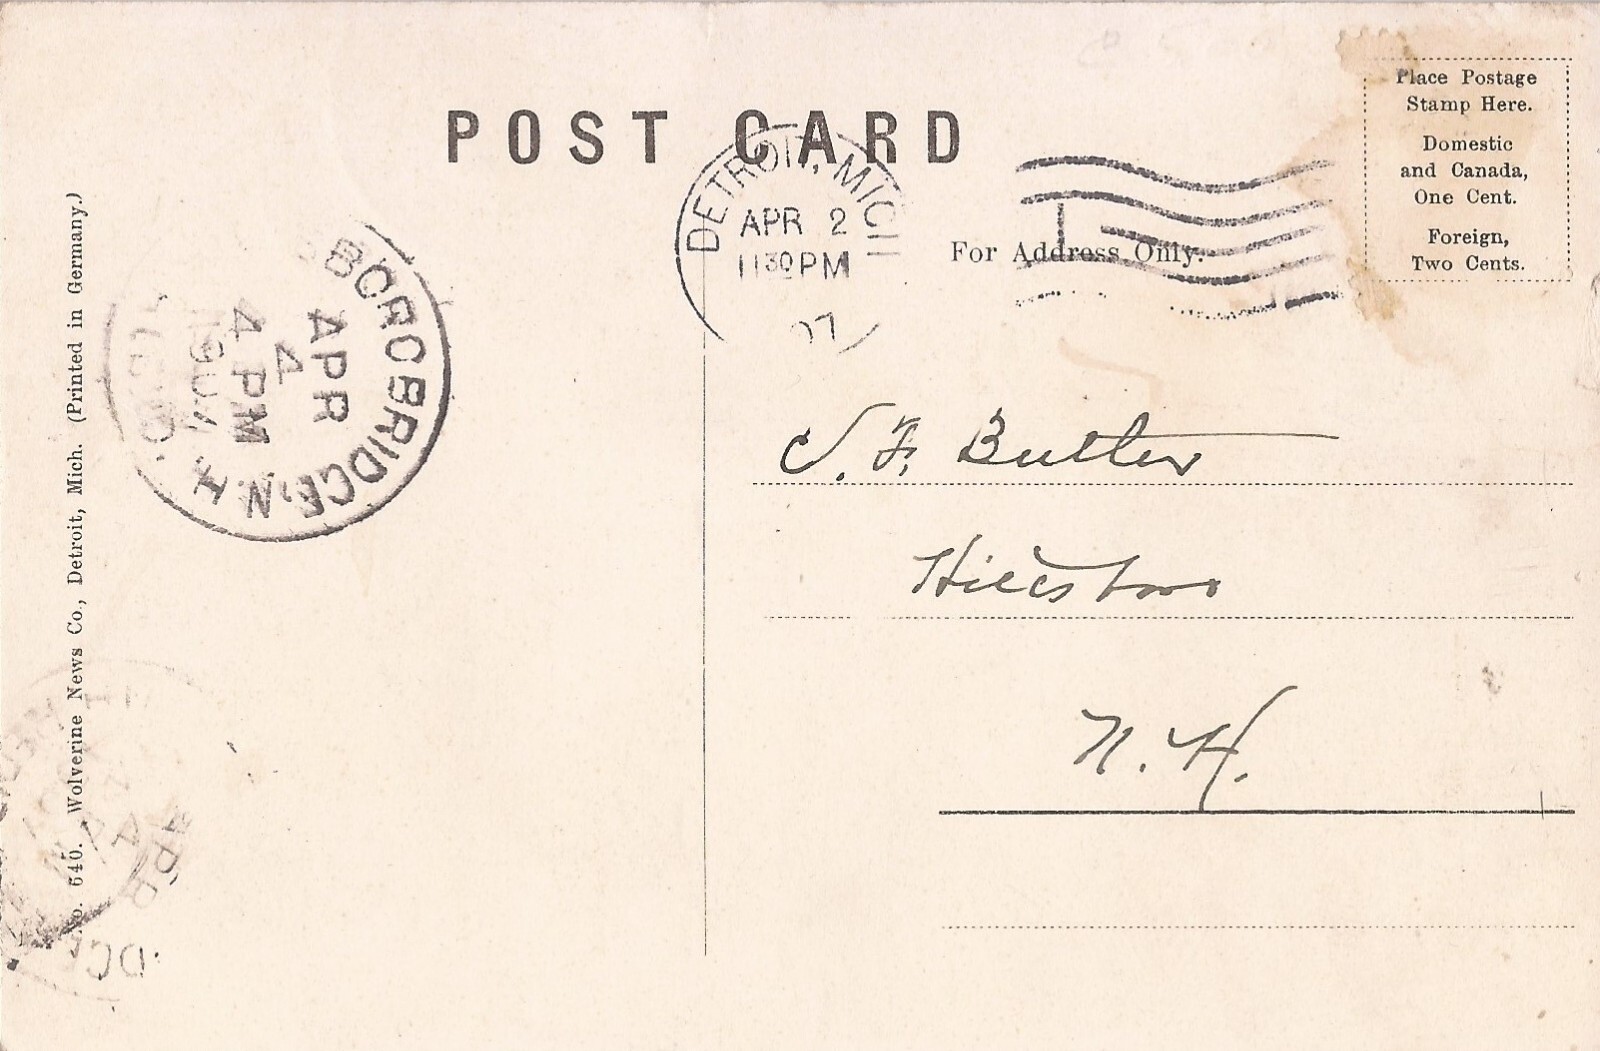 POST CARD
Place Postage
Stamp Here.
Domestic
and Canada,
One Cent.
Foreign,
Two Cents.
DETROIT, MICH
APR 2
11 30 PM
07
For Address Only.
BOROBRIDGE, N.H.
APR
4
4 PM
1907
J. F. Butler
Hillsboro
N. H.
No. 640. Wolverine News Co., Detroit, Mich. (Printed in Germany.)